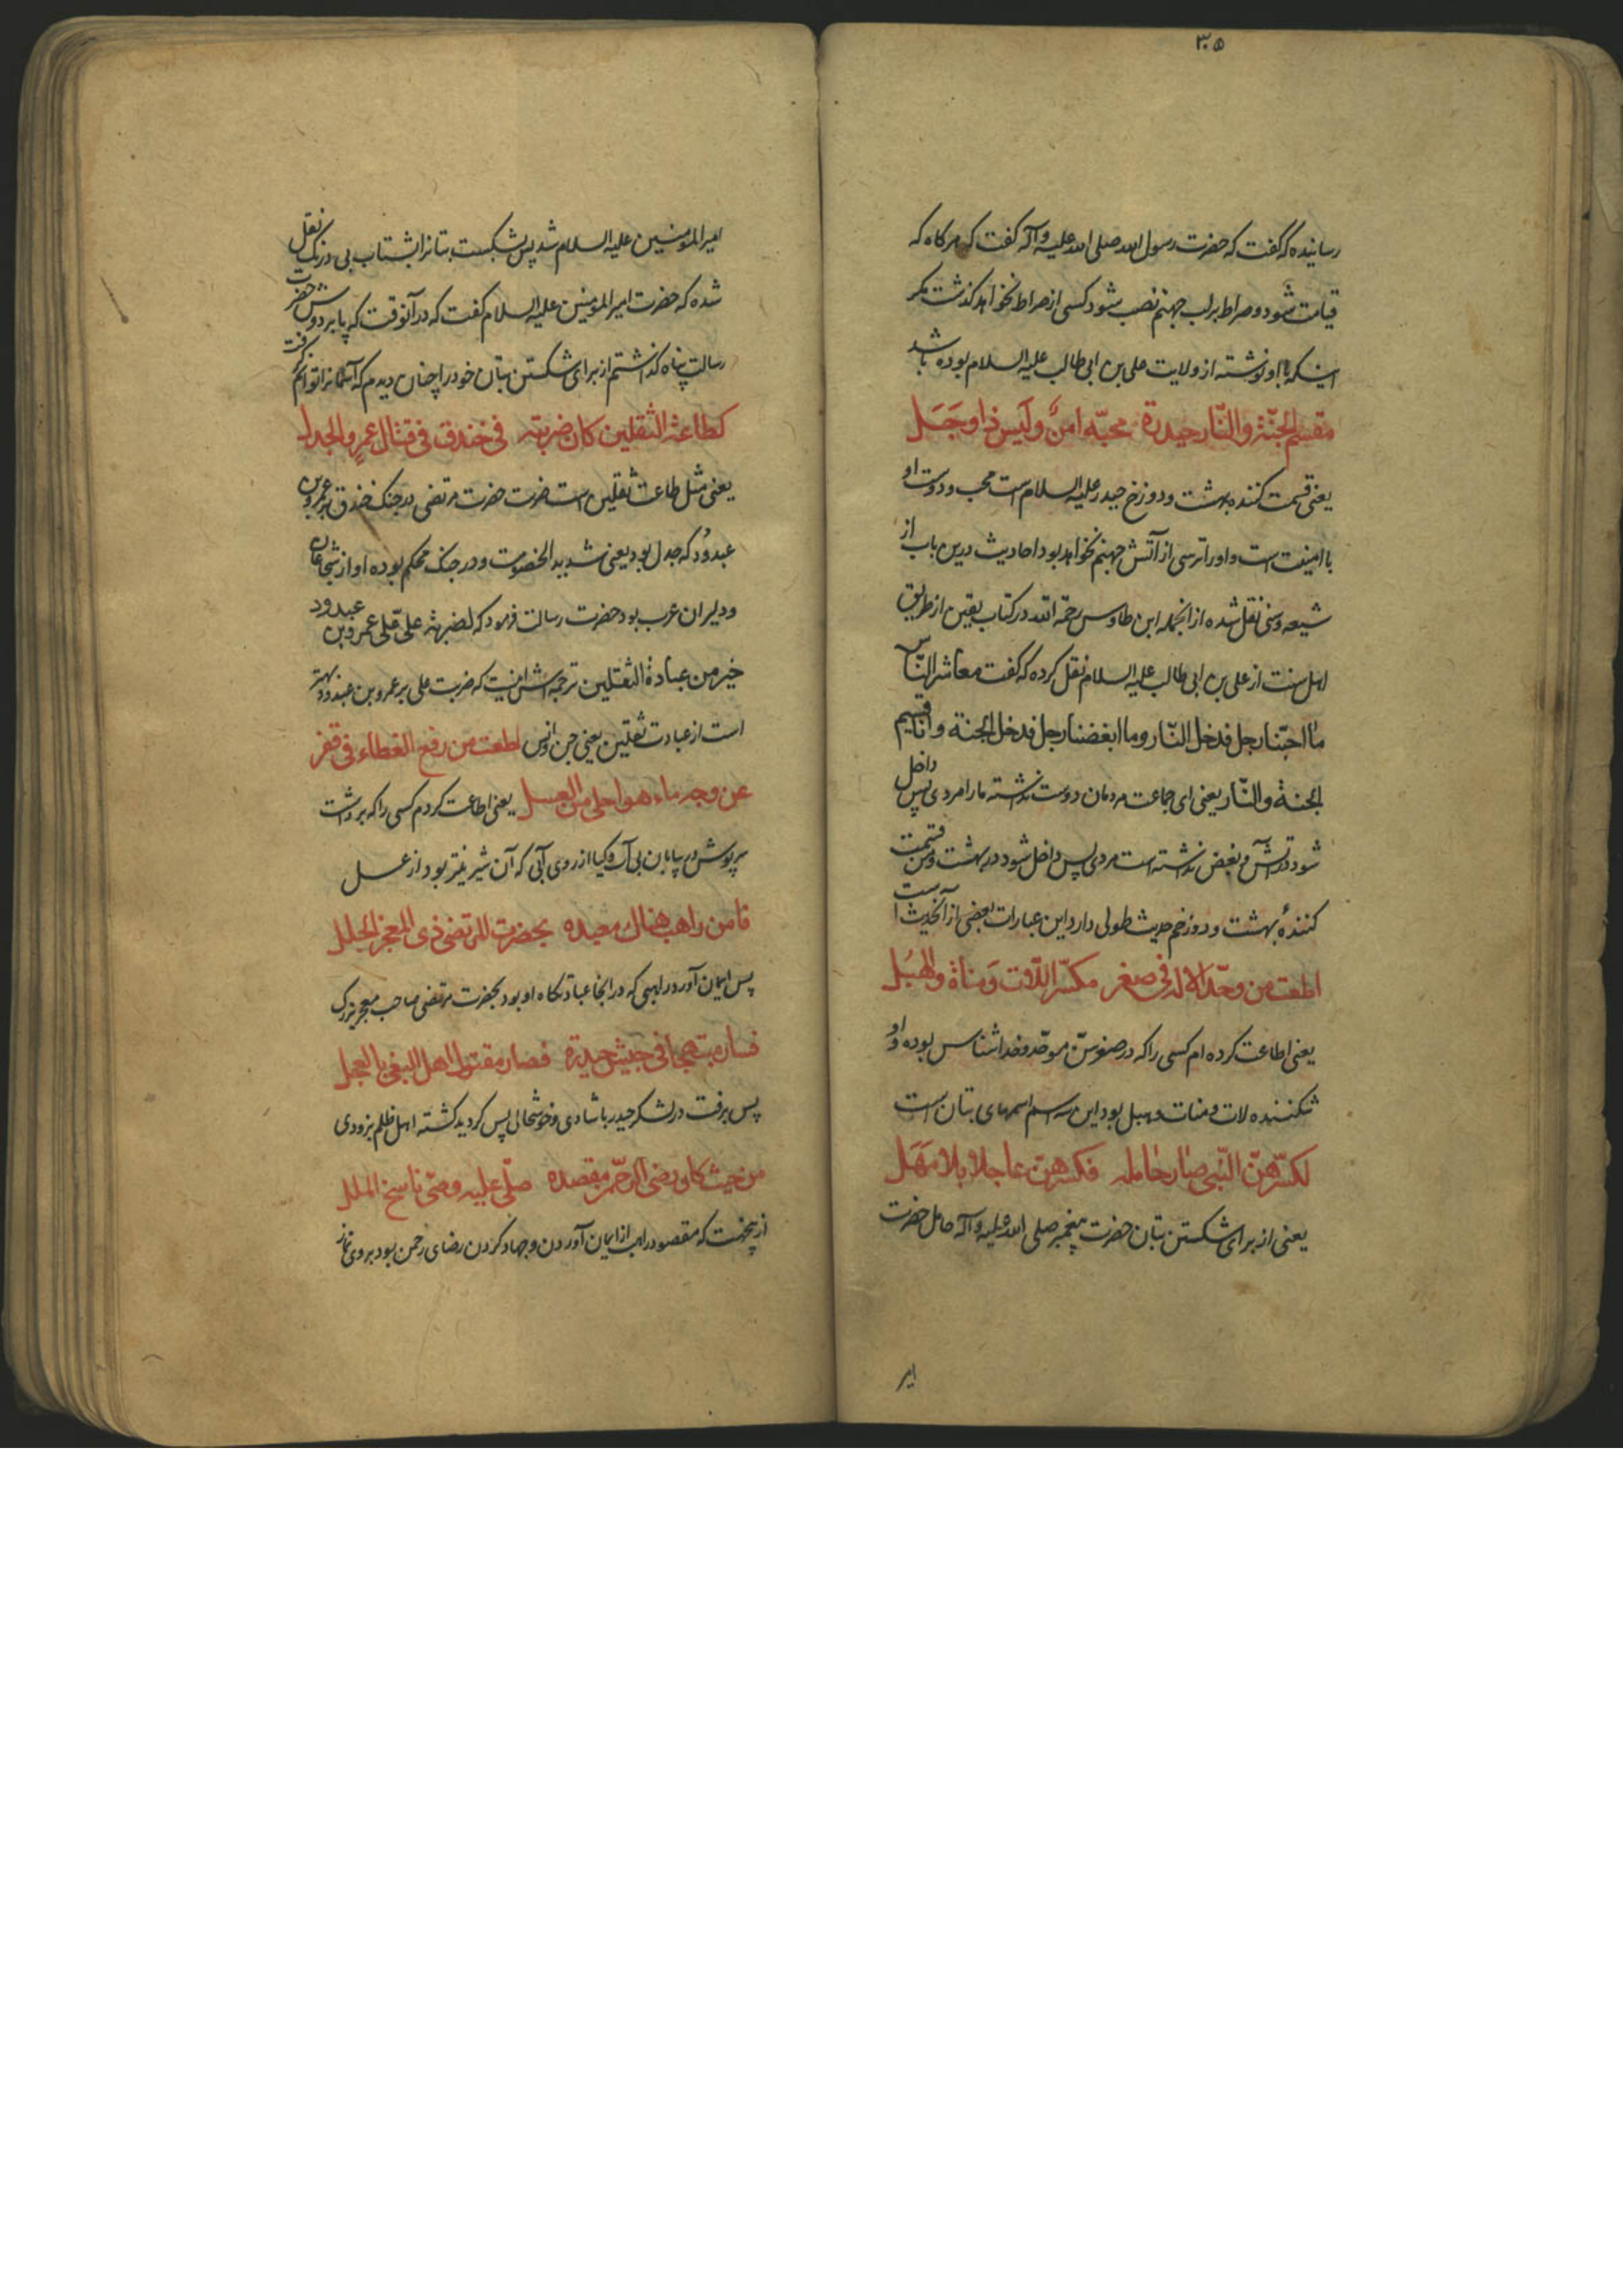 ۳۰۵
رسانیده که گفت که حضرت رسول الله صلی الله علیه و آله گفت که هرکاه که
قیامت شود و صراط بر لب جهنم نصب شود کسی از صراط نخواهد کذشت مکر
اینکه با او نوشته از ولایت علی بن ابی طالب علیه السلام بوده باشد
مقسم الجنّة والنّار حیدرة محبّه امن ولَیس ذا وَجَل
یعنی قسمت کننده بهشت و دوزخ حیدر علیه السلام است محب و دوست او
با امنیت است و او را ترسی از آتش جهنم نخواهد بود احادیث درین باب از
شیعه و سنی نقل شده از انجمله ابن طاوس رحمة الله در کتاب یقین از طریق
اهل سنت از علی بن ابی طالب علیه السلام نقل کرده که گفت معاشر النّاس
ما احبّنا رجل فدخل النّار وما ابغضنا رجل فدخل الجنة وانا قسیم
الجنة والنّار یعنی ای جماعت مردمان دوست نداشته ما را مردی پس داخل
شود در آتش و بغض نداشته است مردی پس داخل شود در بهشت و من قسمت
کنندهٔ بهشت و دوزخم حدیث طولی دارد این عبارات بعضی از آنحدیث است
اطعت من وحّد الاله فی صغر مکسّر اللّات وَمناة والهبُل
یعنی اطاعت کرده ام کسی را که در صغر سنّ موحّد و خدا شناس بوده و او
شکننده لات و منات و هبل بود این سه اسم اسمهای بتان است
لکسرهنّ النّبی صار حامله فکسرهنّ عاجلا بلا مَهَل
یعنی از برای شکستن بتان حضرت پیغمبر صلی الله علیه و آله حامل حضرت
امیر
امیر المومنین علیه السلام شد پس بشکست بتانرا بشتاب بی درنک نقل
شده که حضرت امیر المومنین علیه السلام گفت که در آنوقت که پا بر دوش حضرت
رسالت پناه کذاشتم از برای شکستن بتان خود را چنان دیدم که آسمانرا توانم کرفت
کطاعة الثقلین کان ضربته فی خندق فی قتال عمرٍو الجدل
یعنی مثل طاعت ثقلین است ضربت حضرت مرتضی در جنک خندق بر عمرو بن
عبدوُد که جدل بود یعنی شدید الخصومت و در جنک محکم بوده او از شجاعان
و دلیران عرب بود حضرت رسالت فرمود که لضربة علیّ علی عمرو بن عبدود
خیر من عبادة الثقلین ترجمه اش اینست که ضربت علی بر عمرو بن عبدود بهتر
است از عبادت ثقلین یعنی جن و انس اطعت من رفع الغطاء فی قفر
عن وجه ماء هو احلی من العسل یعنی اطاعت کردم کسی را که برداشت
سرپوش در بیابان بی آب و کیا از روی آبی که آن شیرینتر بود از عسل
فامن راهب هناك معبده بحضرت المرتضی ذی المعجز الجلل
پس ایمان آورد راهبی که در انجا عبادتکاه او بود بحضرت مرتضی صاحب معجز بزرک
فسار مبتهجا فی جیش حیدرة فصار مقتول اهل البغی بالعجل
پس برفت در لشکر حیدر با شادی و خوشحالی پس کردید کشته اهل ظلم بزودی
من حیث کان رضی الرحمن مقصده صلّی علیه وصیّ ناسخ الملل
ازینجهت که مقصود راهب از ایمان آوردن و جهاد کردن رضای رحمن بود بر وی نماز